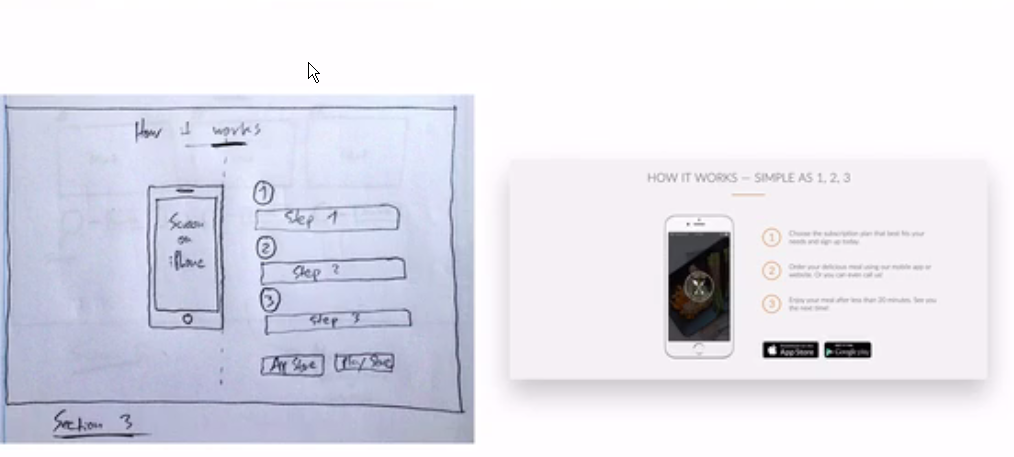 How it works
Screen
on
iPhone
1
Step 1
2
Step 2
3
Step 3
App Store
Play Store
Section 3
HOW IT WORKS — SIMPLE AS 1, 2, 3
1
Choose the subscription plan that best fits your
needs and sign up today.
2
Order your delicious meal using our mobile app or
website. Or you can even call us!
3
Enjoy your meal after less than 20 minutes. See you
the next time!
App Store
Google play